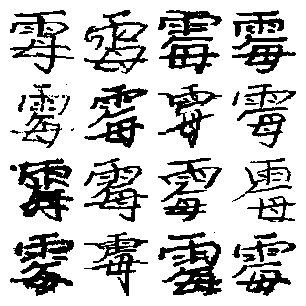 霉霉霉霉
霉霉霉霉
霉霉霉霉
霉霉霉霉